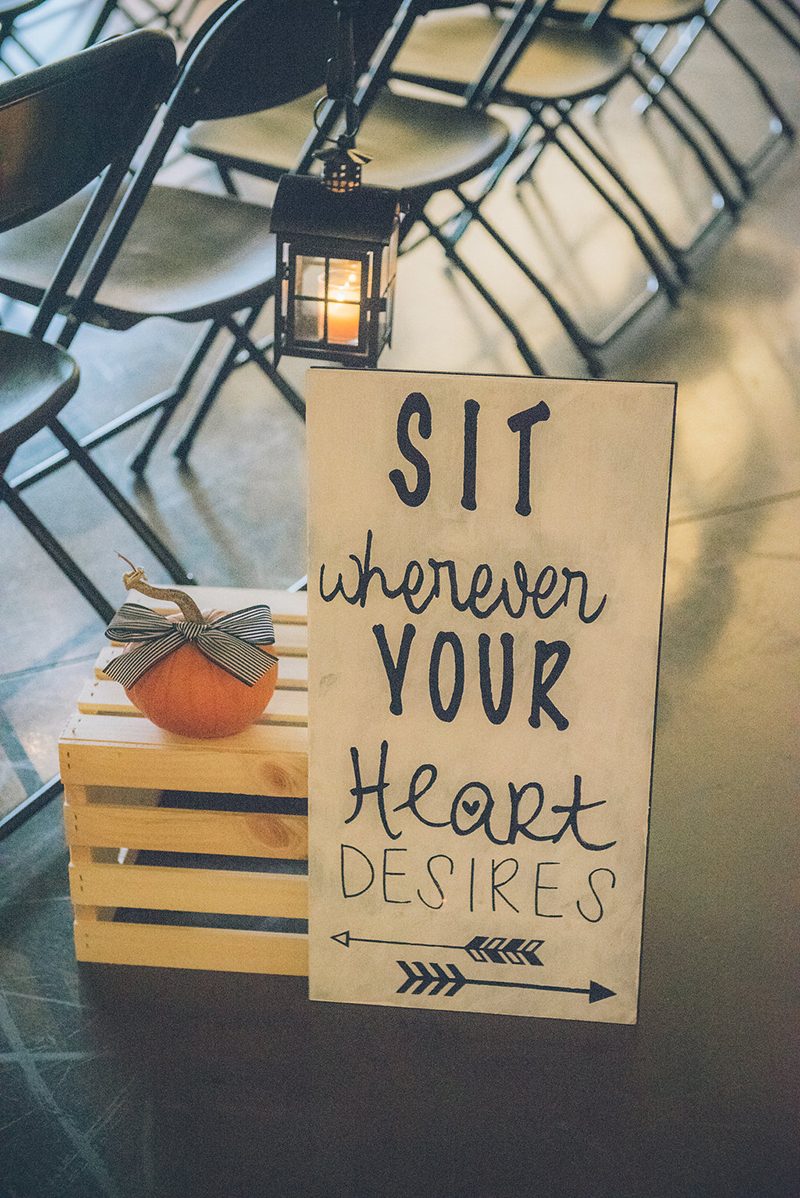 SIT
wherever
YOUR
HeaRt
DESIRES